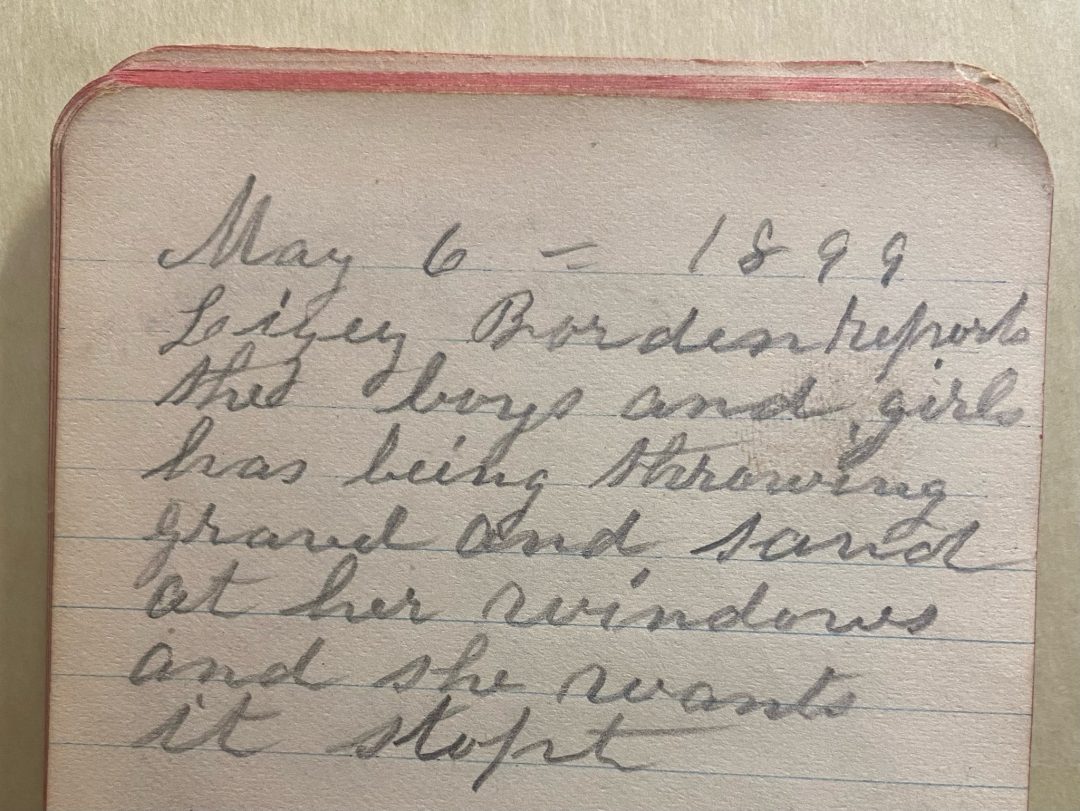 May 6 = 1899
Lizey Borden reports
the boys and girls
has being throwing
gravel and sand
at her windows
and she wants
it stopt